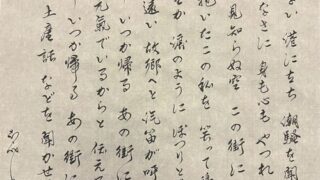 ない 港に立ち 潮騒を聞
なさに 身も心も やつれ
見知らぬ空 この街に
抱いたこの私を 笑って
か 涙のように ぽつりと
遠い 故郷へと 汽笛が呼
いつか帰る あの街に
元気でいるからと 伝え
いつか帰る あの街に
土産話 などを 聞かせ